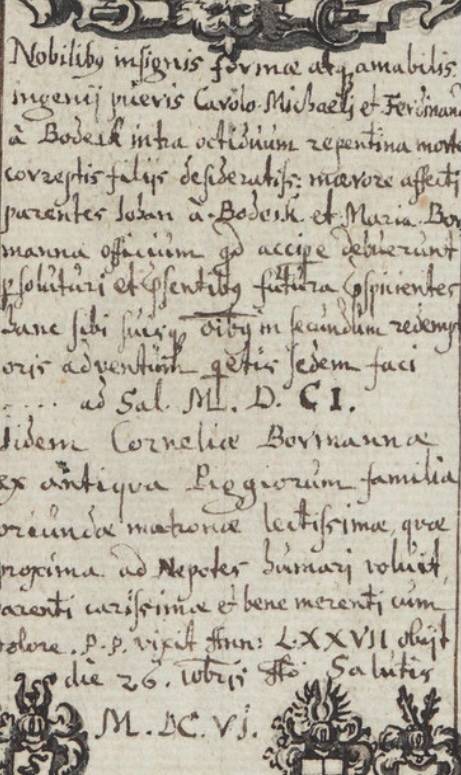 Nobilibq insignis formæ atq amabilis
ingenij pueris Carolo Michaeli et Ferdinand
à Bodeck intra octiduum repentina morte
correptis filijs desideratiss: mærore affecti
parentes Johan à Bodeck et Maria Bor
manna officium qd accipe debuerunt
psoluturi et psentibq futura pspicientes
hanc sibi suisq oibq in secundum redempt
oris adventum qetis sedem faci
.... ad Sal. M. D. CI.
Iidem Corneliæ Bormannæ
ex antiqua Piggiorum familia
oriundæ matronæ lectissimæ, quæ
proxima ad Nepotes humari voluit
arenti carissimæ et bene merenti cum
olore. P. P. vixit Ann: LXXVII obijt
die 26. 10bris Ao Salutis
M. DC. VI.